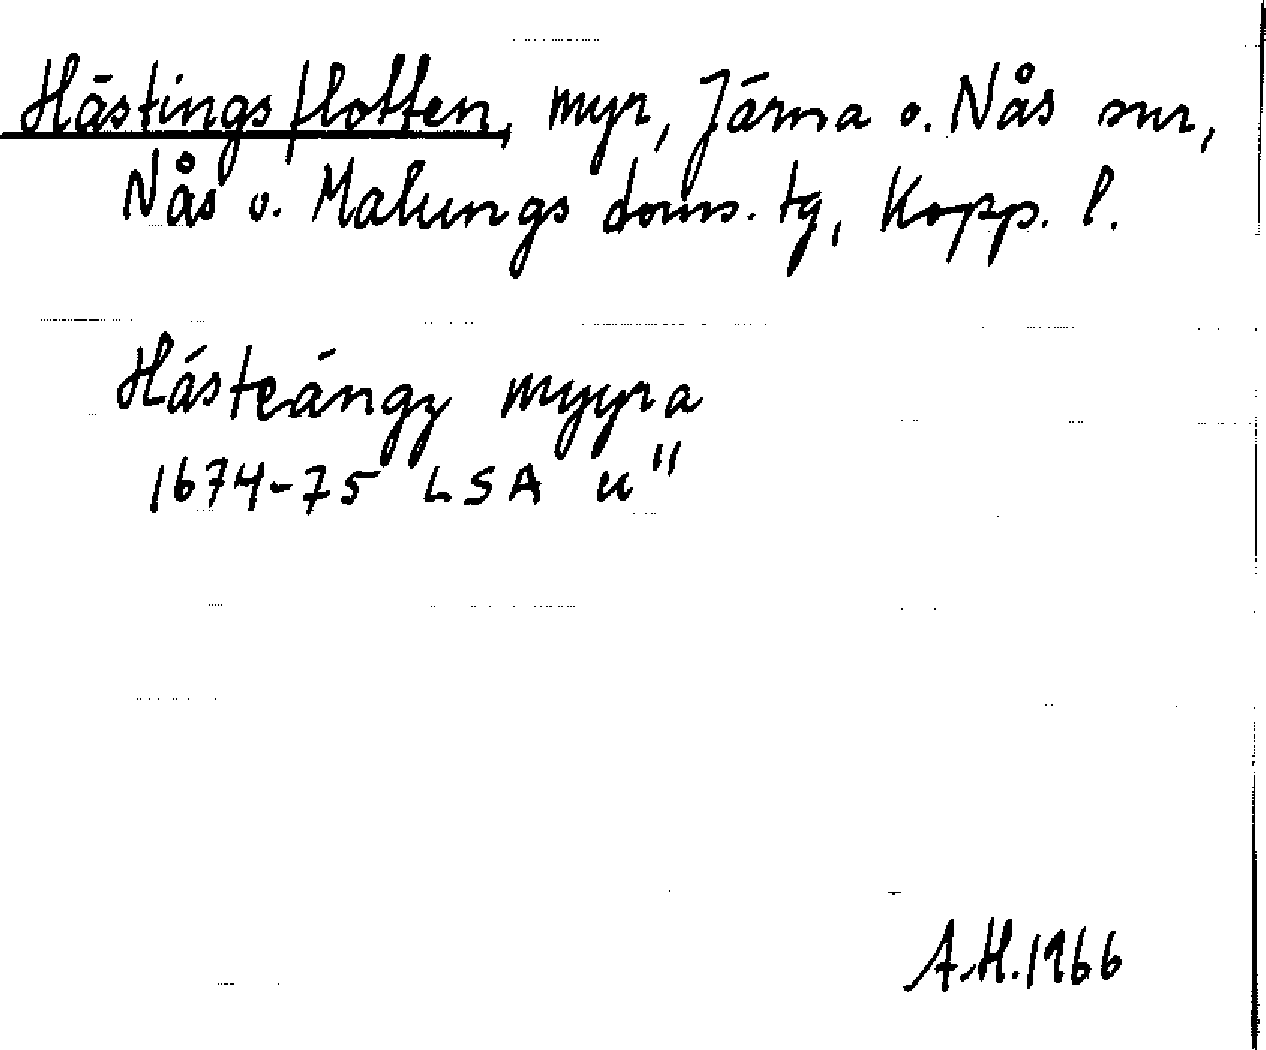 Hästingsflotten, myr, Järna o. Nås snr,
Nås o. Malungs doms. tg, Kopp. l.
Hästeängy myyra
1674-75 LSA u"
A.H. 1966